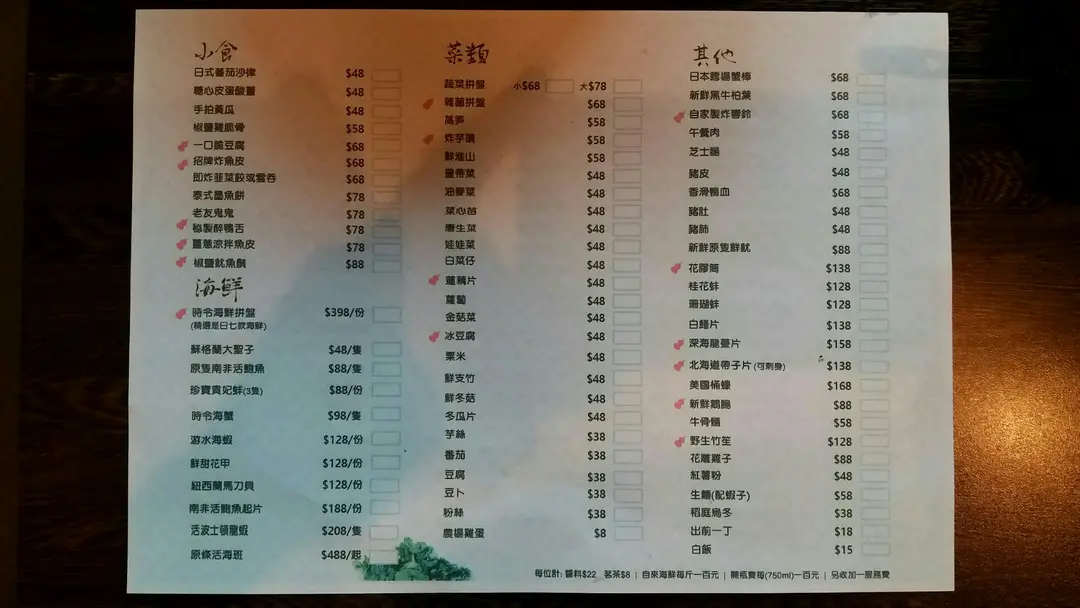 小食
日式蕃茄沙律 $48
糖心皮蛋酸薑 $48
手拍黃瓜 $48
椒鹽雞脆骨 $58
一口脆豆腐 $68
招牌炸魚皮 $68
即炸韮菜餃或雲吞 $68
泰式墨魚餅 $78
老友鬼鬼 $78
秘製醉鴨舌 $78
薑蔥涼拌魚皮 $78
椒鹽魷魚鬚 $88
海鮮
時令海鮮拼盤 $398/份
(精選是日七款海鮮)
蘇格蘭大聖子 $48/隻
原隻南非活鮑魚 $88/隻
珍寶貴妃蚌(3隻) $88/份
時令海蟹 $98/隻
游水海蝦 $128/份
鮮甜花甲 $128/份
紐西蘭馬刀貝 $128/份
南非活鮑魚起片 $188/份
活波士頓龍蝦 $208/隻
原條活海班 $488/起
菜類
蔬菜拼盤 小$68 大$78
雜菌拼盤 $68
萵筍 $58
炸芋頭 $58
鮮淮山 $58
皇帝菜 $48
油麥菜 $48
菜心苗 $48
唐生菜 $48
娃娃菜 $48
白菜仔 $48
蓮藕片 $48
蘿蔔 $48
金菇菜 $48
冰豆腐 $48
粟米 $48
鮮支竹 $48
鮮冬菇 $48
冬瓜片 $48
芋絲 $38
番茄 $38
豆腐 $38
豆卜 $38
粉絲 $38
農場雞蛋 $8
其他
日本鱈場蟹棒 $68
新鮮黑牛柏葉 $68
自家製炸響鈴 $68
午餐肉 $58
芝士腸 $48
豬皮 $48
香滑鴨血 $68
豬肚 $48
豬肺 $48
新鮮原隻鮮魷 $88
花膠筒 $138
桂花蚌 $128
珊瑚蚌 $128
白鱔片 $138
深海龍躉片 $158
北海道帶子片(可刺身) $138
美國桶蠔 $168
新鮮鵝腸 $88
牛骨髓 $58
野生竹笙 $128
花雕雞子 $88
紅薯粉 $48
生麵(配蝦子) $58
稻庭烏冬 $38
出前一丁 $18
白飯 $15
每位計: 醬料$22 茗茶$8 | 自來海鮮每斤一百元 | 開瓶費每(750ml)一百元 | 另收加一服務費